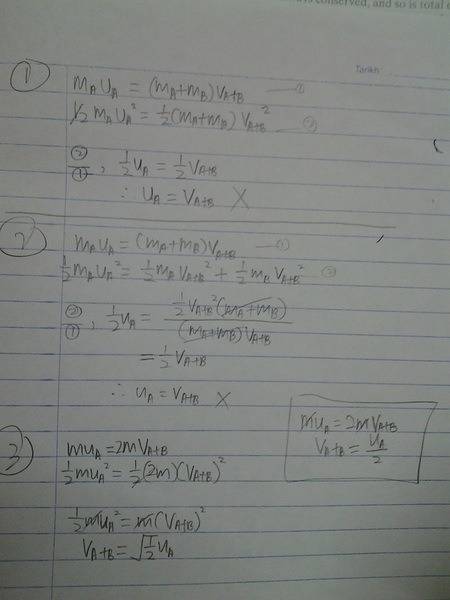 conserved, and so is total
Tarikh
①
m_A u_A = (m_A+m_B)V_{A+B} — ①
½ m_A u_A² = ½(m_A+m_B) V_{A+B}² — ②
②/①, ½u_A = ½V_{A+B}
∴ u_A = V_{A+B} X
②
m_A u_A = (m_A+m_B)V_{A+B} — ①
½ m_A u_A² = ½ m_A V_{A+B}² + ½ m_B V_{A+B}² ②
②/①, ½u_A = ½V_{A+B}²(m_A+m_B) / (m_A+m_B)V_{A+B}
= ½V_{A+B}
∴ u_A = V_{A+B} X
mu_A = 2mV_{A+B}
V_{A+B} = u_A/2
③
mu_A = 2mV_{A+B}
½mu_A² = ½(2m)(V_{A+B})²
½mu_A² = m(V_{A+B})²
V_{A+B} = √½ u_A